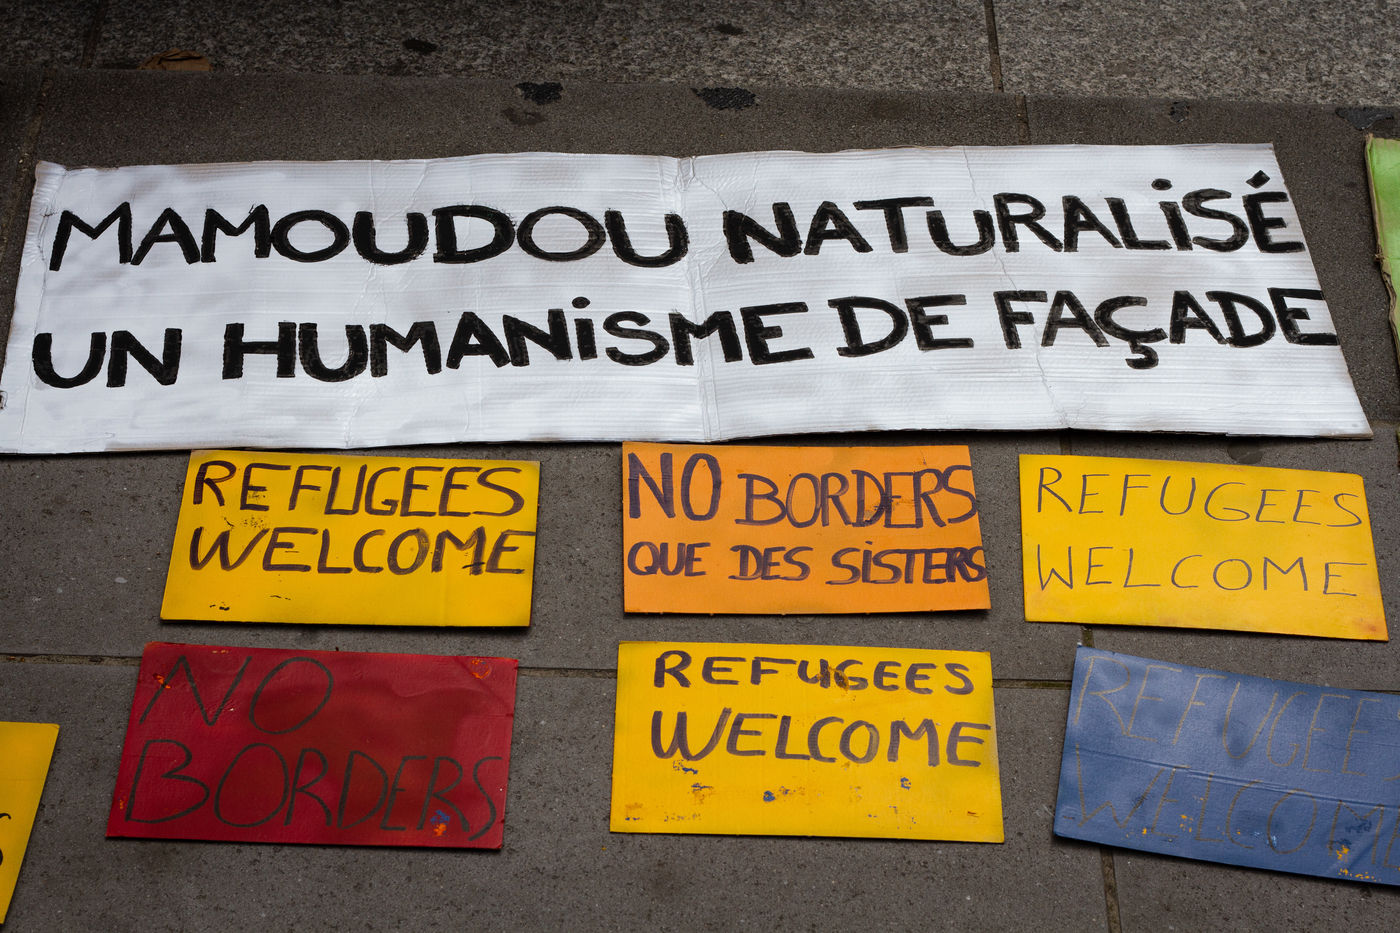 MAMOUDOU NATURALISÉ
UN HUMANISME DE FAÇADE
REFUGEES
WELCOME
NO BORDERS
QUE DES SISTERS
REFUGEES
WELCOME
NO
BORDERS
REFUGEES
WELCOME
REFUGEE
WELCOME